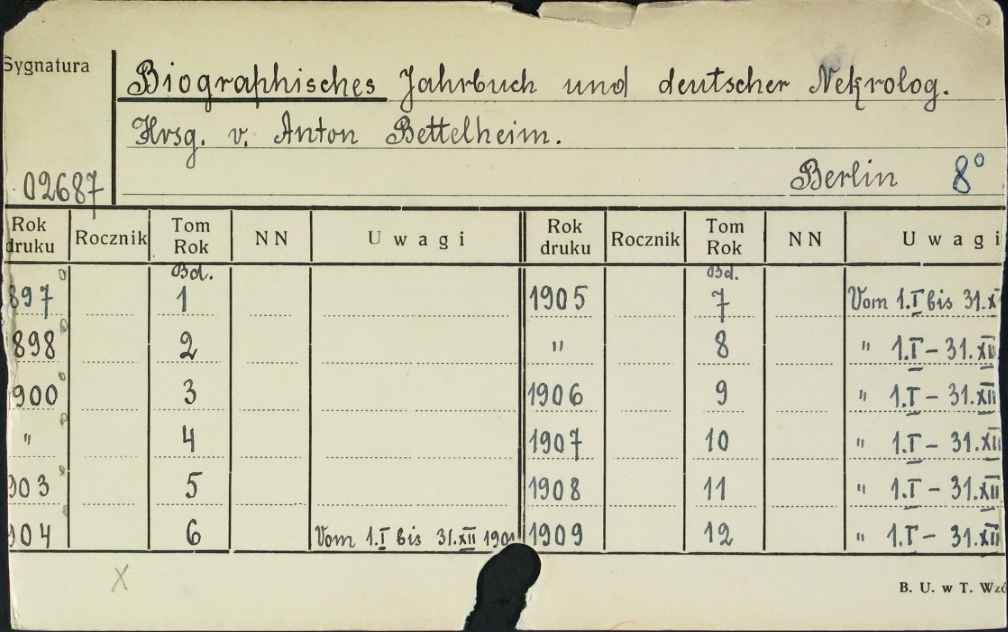 Sygnatura
Biographisches Jahrbuch und deutscher Nekrolog.
Hrsg. v. Anton Bettelheim.
02687 Berlin 8°
Rok druku Rocznik Tom Rok NN Uwagi Rok druku Rocznik Tom Rok NN Uwagi
Bd. Bd.
897 1 1905 7 Vom 1.I bis 31.X
898 2 " 8 " 1.I – 31.XII
900 3 1906 9 " 1.I – 31.XII
" 4 1907 10 " 1.I – 31.XII
903 5 1908 11 " 1.I – 31.XII
904 6 Vom 1.I bis 31.XII 1901 1909 12 " 1.I – 31.XII
X
B. U. w T.